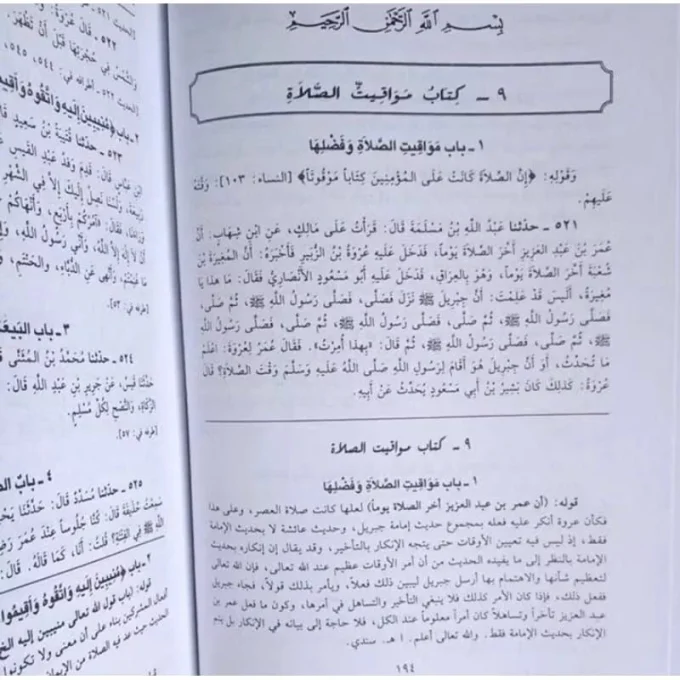 بِسْمِ اللَّهِ الرَّحْمَنِ الرَّحِيمِ
٩ ـ كِتَابُ مَوَاقِيتِ الصَّلَاةِ
١ ـ باب مَوَاقِيتِ الصَّلَاةِ وَفَضْلِهَا
وَقَوْلِهِ: ﴿إِنَّ الصَّلَاةَ كَانَتْ عَلَى المُؤْمِنِينَ كِتَاباً مَوْقُوتاً﴾ [النساء: ١٠٣]: وَقَّتَهُ
عَلَيْهِمْ.
٥٢١ ـ حدثنا عَبْدُ اللَّهِ بْنُ مَسْلَمَةَ قَالَ: قَرَأْتُ عَلَى مَالِكٍ، عَنِ ابْنِ شِهَابٍ: أَنَّ
عُمَرَ بْنَ عَبْدِ العَزِيزِ أَخَّرَ الصَّلَاةَ يَوْماً، فَدَخَلَ عَلَيهِ عُرْوَةُ بْنُ الزُّبَيرِ فَأَخْبَرَهُ: أَنَّ المُغِيرَةَ بْنَ
شُعْبَةَ أَخَّرَ الصَّلَاةَ يَوْماً، وَهُوَ بِالعِرَاقِ، فَدَخَلَ عَلَيهِ أَبُو مَسْعُودٍ الأَنْصَارِيُّ فَقَالَ: مَا هذا يَا
مُغِيرَةُ، أَلَيسَ قَدْ عَلِمْتَ: أَنَّ جِبْرِيلَ نَزَلَ فَصَلَّى، فَصَلَّى رَسُولُ اللَّهِ ﷺ، ثُمَّ صَلَّى،
فَصَلَّى رَسُولُ اللَّهِ ﷺ، ثُمَّ صَلَّى، فَصَلَّى رَسُولُ اللَّهِ ﷺ، ثُمَّ صَلَّى، فَصَلَّى رَسُولُ
اللَّهِ ﷺ، ثُمَّ صَلَّى، فَصَلَّى رَسُولُ اللَّهِ ﷺ، ثُمَّ قَالَ: «بِهذا أُمِرْتُ». فَقَالَ عُمَرُ لِعُرْوَةَ: اعْلَمْ
مَا تُحَدِّثُ، أَوَ أَنَّ جِبْرِيلَ هُوَ أَقَامَ لِرَسُولِ اللَّهِ صَلَّى اللَّهُ عَلَيْهِ وَسَلَّمَ وَقْتَ الصَّلَاةِ؟ قَالَ
عُرْوَةُ: كَذلِكَ كَانَ بَشِيرُ بْنُ أَبِي مَسْعُودٍ يُحَدِّثُ عَنْ أَبِيهِ.
٩ ـ كتاب مواقيت الصلاة
١ ـ باب مَوَاقِيتِ الصَّلَاةِ وَفَضْلِهَا
قوله: (أن عمر بن عبد العزيز أخر الصلاة يوماً) لعلها كانت صلاة العصر، وعلى هذا
فكأن عروة أنكر عليه فعله بمجموع حديث إمامة جبريل، وحديث عائشة لا بحديث الإمامة
فقط، إذ ليس فيه تعيين الأوقات حتى يتجه الإنكار بالتأخير، وقد يقال إن إنكاره بحديث
الإمامة بالنظر إلى ما يفيده الحديث من أن أمر الأوقات عظيم عند الله تعالى، فإن الله تعالى
لتعظيم شأنها والاهتمام بها أرسل جبريل ليبين ذلك فعلاً، ويأمر بذلك قولاً، فجاء جبريل
ففعل ذلك، فإذا كان الأمر كذلك فلا ينبغي التأخير والتساهل في أمرها، وكون ما فعل عمر بن
عبد العزيز تأخراً وتساهلاً كان أمراً معلوماً عند الكل، فلا حاجة إلى بيانه في الإنكار بل يتم
الإنكار بحديث الإمامة فقط. والله تعالى أعلم. ا هـ. سندي.
١٩٤
٥٢٢ ـ قَالَ عُرْوَةُ
وَالشَّمْسُ فِي حُجْرَتِهَا قَبْلَ أَنْ تَظْهَرَ
٢ ـ باب ﴿مُنِيبِينَ إِلَيهِ وَاتَّقُوهُ وَأَقِيمُوا
٥٢٣ ـ حدثنا قُتَيبَةُ بْنُ سَعِيدٍ قَالَ
ابْنِ عَبَّاسٍ قَالَ: قَدِمَ وَفْدُ عَبْدِ القَيسِ
نَصِلُ إِلَيكَ إِلَّا فِي الشَّهْرِ
[طرفه في: ٥٣].
٣ ـ باب البَيعَةِ
٥٢٤ ـ حدثنا مُحَمَّدُ بْنُ المُثَنَّى
حَدَّثَنَا قَيسٌ، عَنْ جَرِيرِ بْنِ عَبْدِ اللَّهِ قَالَ:
الزَّكَاةِ، وَالنُّصْحِ لِكُلِّ مُسْلِمٍ.
[طرفه في: ٥٧].
٤ ـ بابٌ
٥٢٥ ـ حدثنا مُسَدَّدٌ قَالَ: حَدَّثَنَا
سَمِعْتُ حُذَيفَةَ قَالَ: كُنَّا جُلُوساً عِنْدَ عُمَرَ
اللَّهِ ﷺ فِي الفِتْنَةِ؟ قُلْتُ: أَنَا، كَمَا قَالَهُ. قَالَ
٢ ـ باب ﴿مُنِيبِينَ إِلَيهِ وَاتَّقُوهُ وَأَقِيمُوا
قوله: (باب قول الله تعالى منيبين إليه